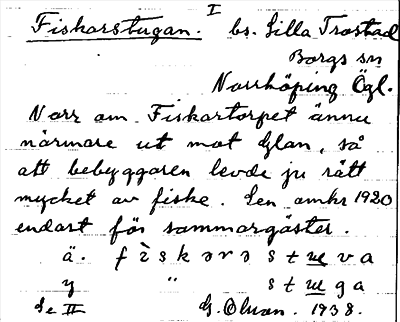 I
Fiskarstugan. bs. Lilla Trostad
Borgs sn
Norrköping Ögl.
Norr om Fiskartorpet ännu
närmare ut mot Glan, så
att bebyggaren levde ju rätt
mycket av fiske. Sen omkr 1920
endast för sommargäster.
ä. fiskərə stu va
y " stu ga
Se II G. Olson. 1938.